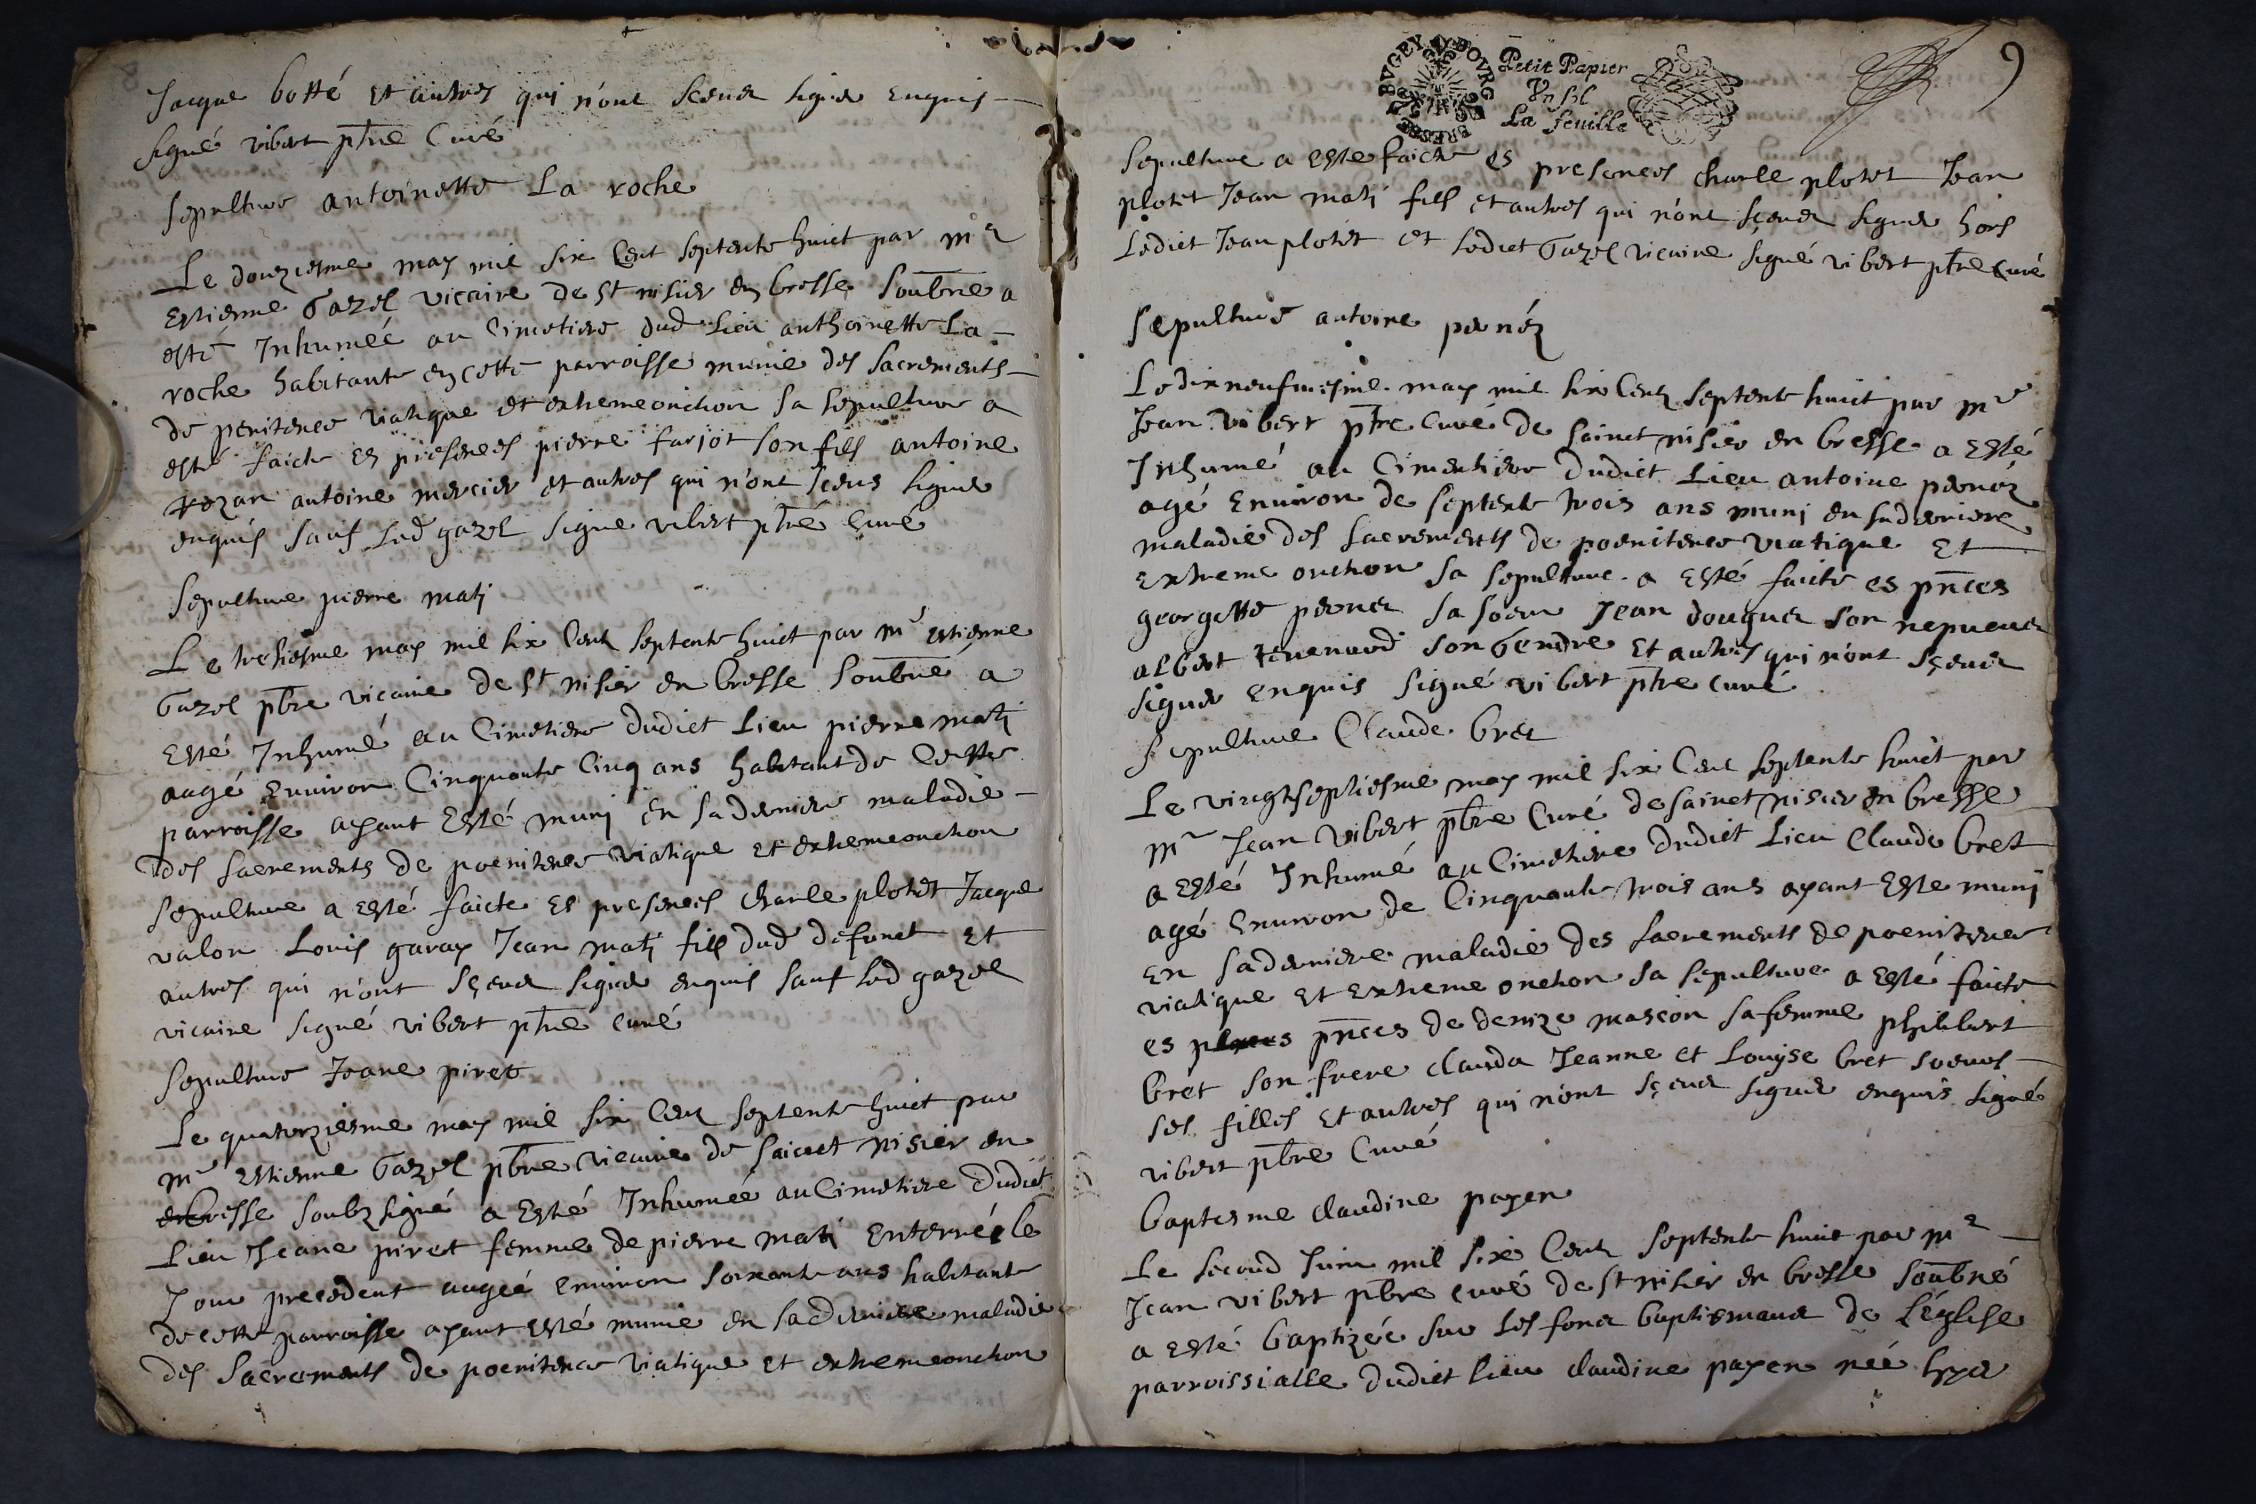 Jacque botté et autres qui n'ont sceu signer enquis
signé vibert ptre curé
sepulture antoinette La roche
Le douziesme may mil six cent septente huict par mre
Estienne Gazel vicaire de St nisier en bresse soubné a
esté Inhumée au Cimetiere dud lieu anthoinette La
roche habitante en cette parroisse munie des sacrements
de penitence viatique et extremeonction sa sepulture a
esté faicte es presences pierre farjot son fils antoine
antoine mercier et autres qui n'ont sceus signer
enquis sauf led gazel signe vibert ptre curé
Sepulture pierre mati
Le tresiesme may mil six cent septente huict par mre estienne
Gazel pbre vicaire de St nisier en bresse soubné a
Esté Inhumé au Cimetiere dudict Lieu pierre mati
augé Environ Cinquante Cinq ans habitant de Cette
parroisse ayant Esté muni En sa derniere maladie
des sacrements de poenitence viatique et extremeonction
sepulture a esté faicte es presences Charle plotet Jacque
valon Louis garay Jean mati fils dud defunct et
autres qui n'ont sçeu signer enquis sauf led gazel
vicaire signé vibert ptre curé
Sepulture Jeane piret
Le quatorziesme may mil six cent septente huict par
mre Estienne Gazel pbre vicaire de saicnt nisier en
bresse soubzsigné a Esté Inhumée au Cimetiere dudict
Lieu Jeane piret femme de pierre mati Enterré le
Jour precedent augée environ soixante ans habitante
de cette parroisse ayant esté munie en sa derniere maladie
des sacrements de poenitence viatique et extremeonction
9
BVGEY BOVRG BRESSE
Petit Papier
Vn sol
La feuille
Sepulture a Este faicte es presences charle plotet Jean
plotet Jean mati fils et autres qui n'ont sçeu signer hors
Ledict Jean plotet et ledict Gazel vicaire signé vibert ptre curé
Sepulture antoine pernéz
Le dixneufviesme may mil six Cent septente huict par mre
Jean vibert ptre curé de sainct nisier en bresse a Esté
Inhumé au Cimentiere dudict Lieu antoine pernéz
agé Environ de septente trois ans muni en sa derniere
maladie des sacrements de poenitence viatique Et
Extreme onction sa sepulture a Esté faicte es pnces
georgette perner sa soeur Jean douguer son nepueu
albert son Gendre et autres qui n'ont sçeu
signer enquis signé vibert ptre curé
Sepulture Claude bret
Le vingtseptiesme may mil six Cent septente huict par
mre Jean vibert pbre Curé de sainct nisier en bresse
a Esté Inhumé au Cimetiere dudict Lieu Claude bret
agé Environ de Cinquante trois ans ayant Esté muni
En sa derniere maladie des sacrements de poenitence
viatique et Extreme onction sa sepulture a esté faicte
es pnces de denize mascon sa femme philibert
bret son frere clauda Jeanne et Louyse bret soeurs
ses filles et autres qui n'ont sçeu signer enquis signé
vibert pbre Curé
baptesme claudine payen
Le second Juin mil six Cent septente huict par mre
Jean vibert pbre curé de St nisier en bresse soubné
a Esté baptizée sur les fond baptismaux de L'église
parroissialle dudict lieu claudine payen née hyer